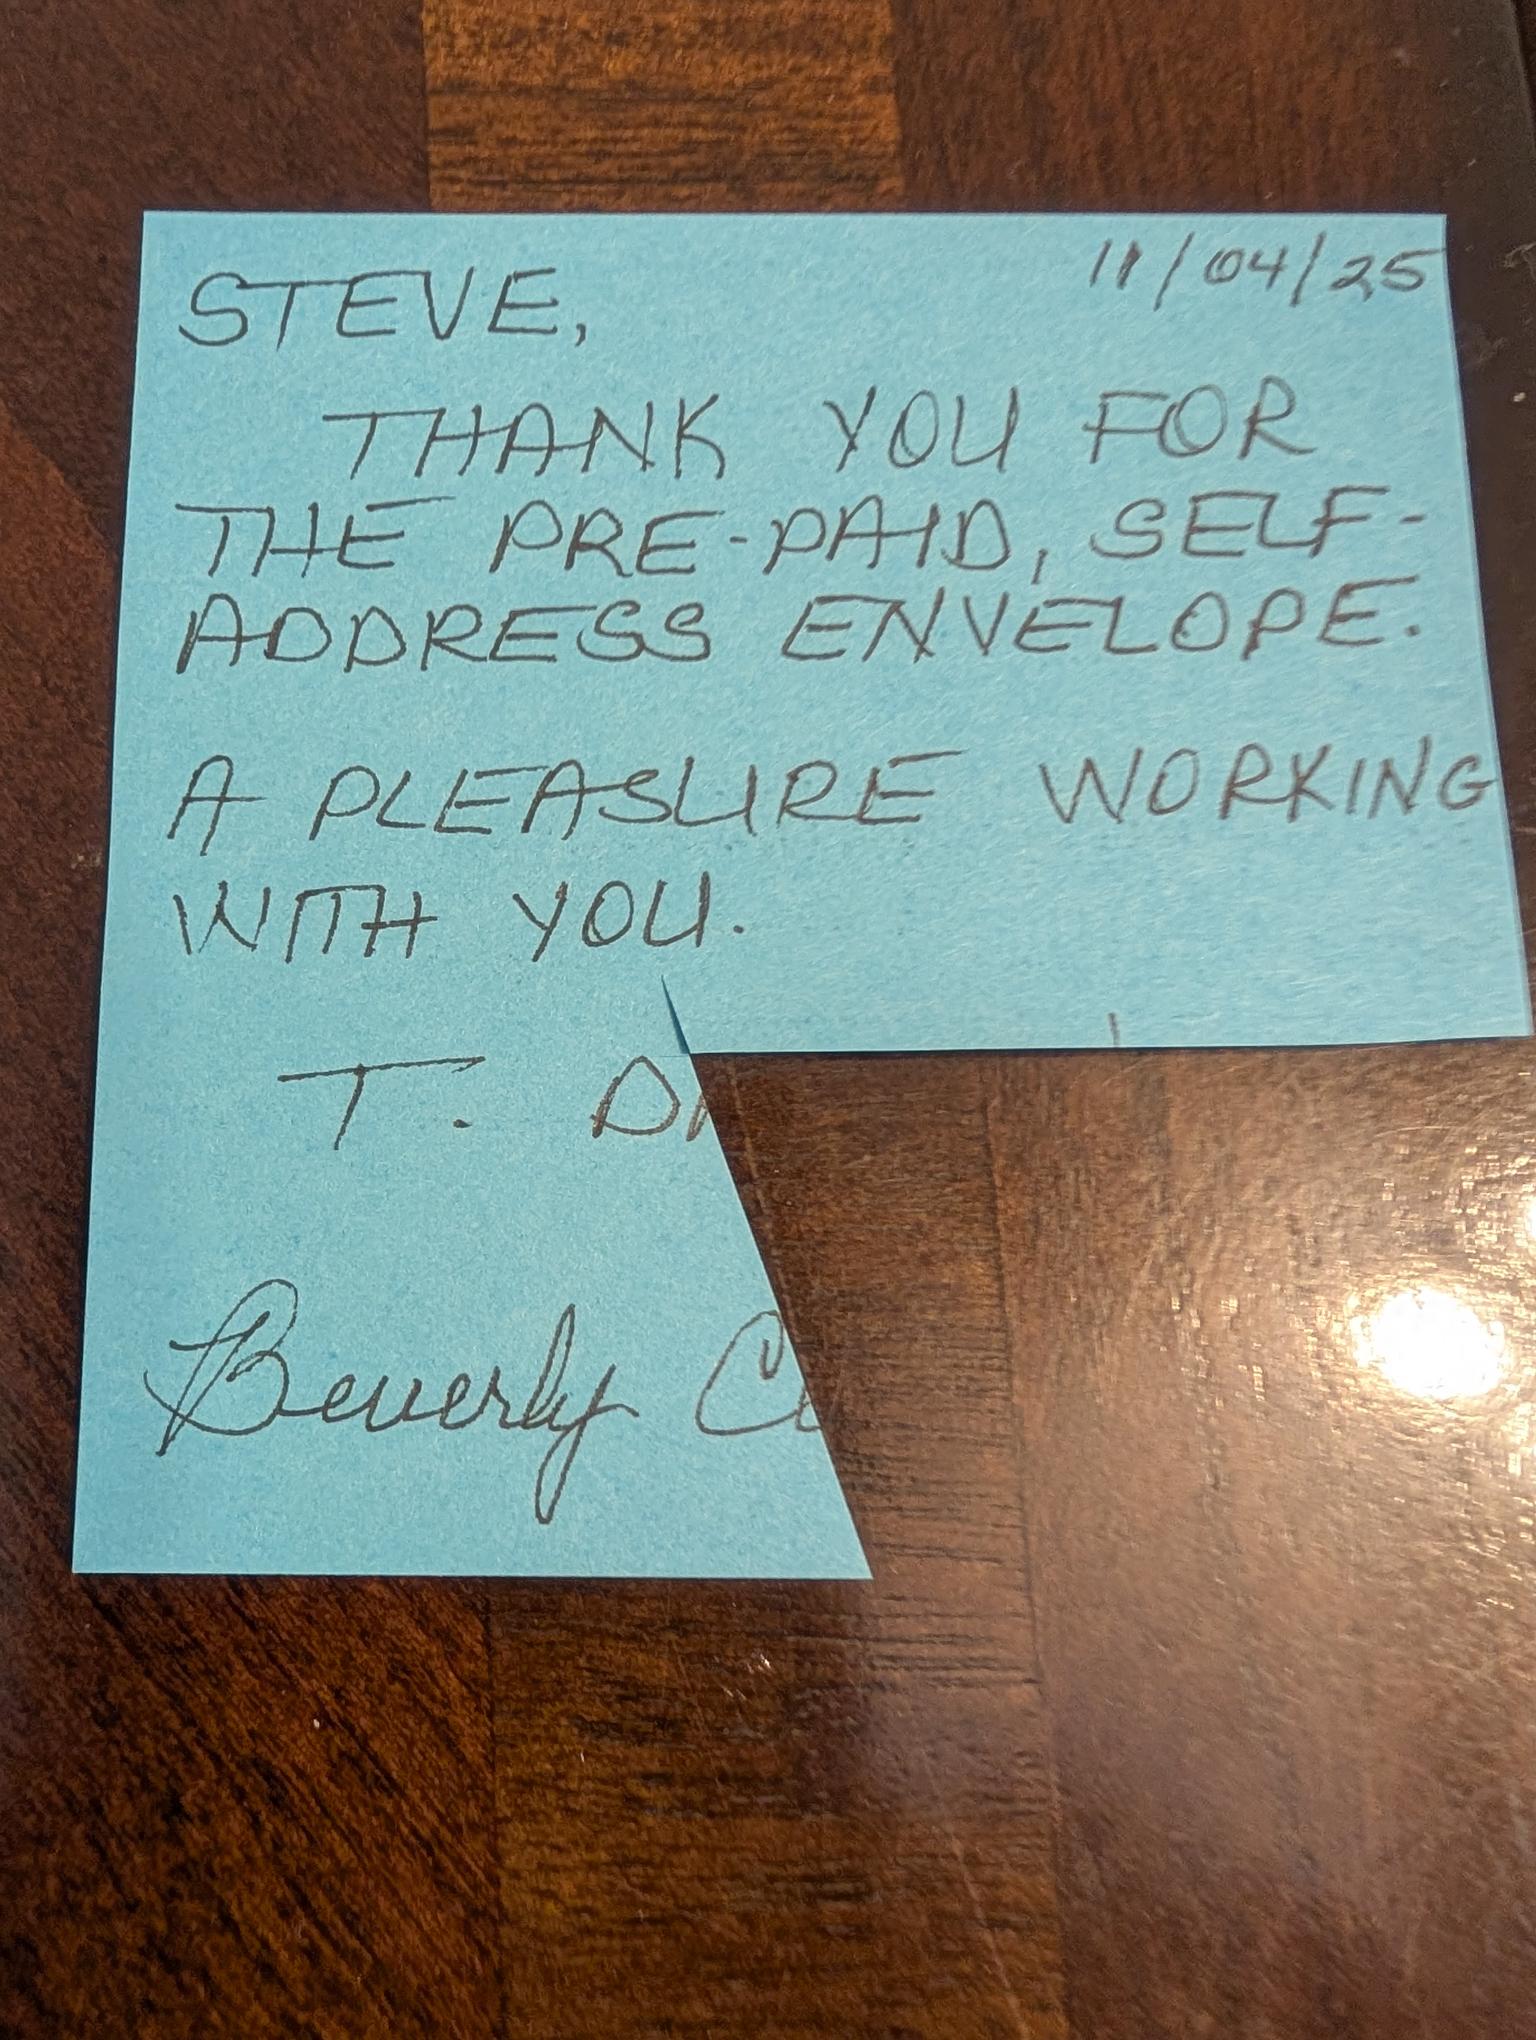 11/04/25
STEVE,
THANK YOU FOR
THE PRE-PAID, SELF-
ADDRESS ENVELOPE.
A PLEASURE WORKING
WITH YOU.
T.
Beverly